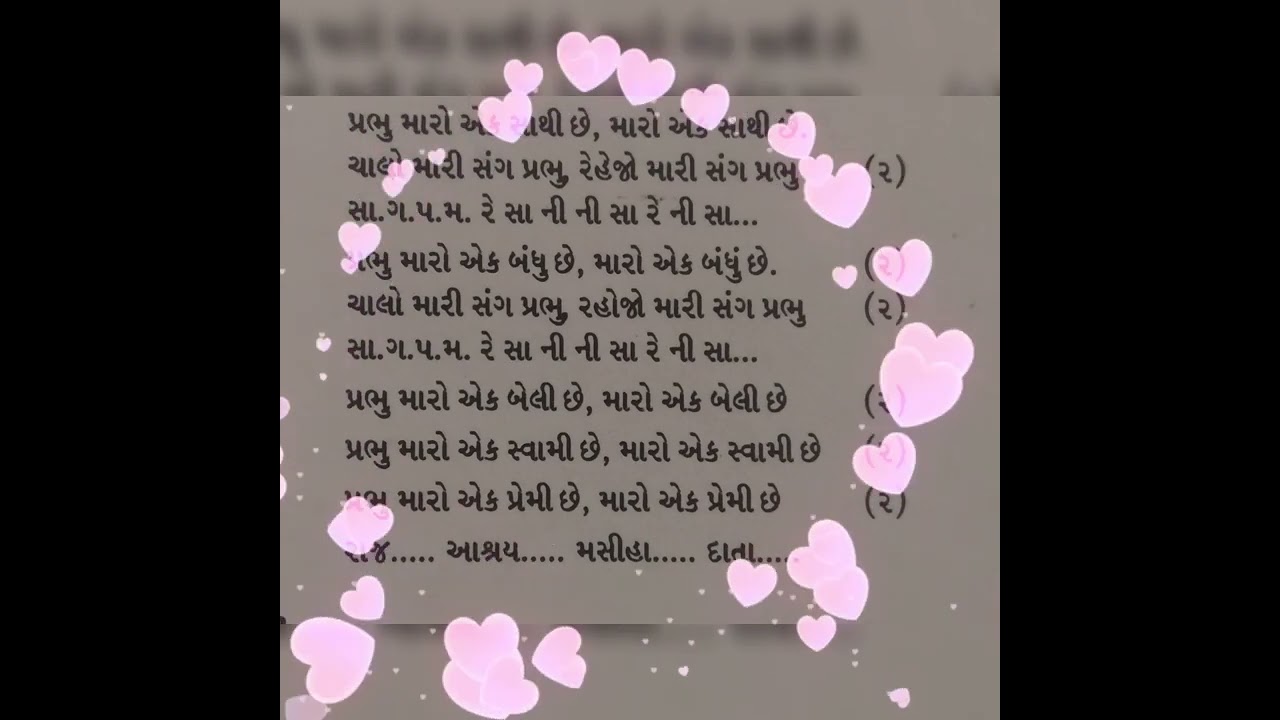 પ્રભુ મારો એક સાથી છે, મારો એક સાથી છે.
ચાલો મારી સંગ પ્રભુ, રેહેજો મારી સંગ પ્રભુ (૨)
સા.ગ.પ.મ. રે સા ની ની સા રે ની સા...
પ્રભુ મારો એક બંધુ છે, મારો એક બંધું છે. (૨)
ચાલો મારી સંગ પ્રભુ, રહોજો મારી સંગ પ્રભુ (૨)
સા.ગ.પ.મ. રે સા ની ની સા રે ની સા...
પ્રભુ મારો એક બેલી છે, મારો એક બેલી છે (૨)
પ્રભુ મારો એક સ્વામી છે, મારો એક સ્વામી છે (૨)
પ્રભુ મારો એક પ્રેમી છે, મારો એક પ્રેમી છે (૨)
રાજ..... આશ્રય..... મસીહા..... દાતા.....